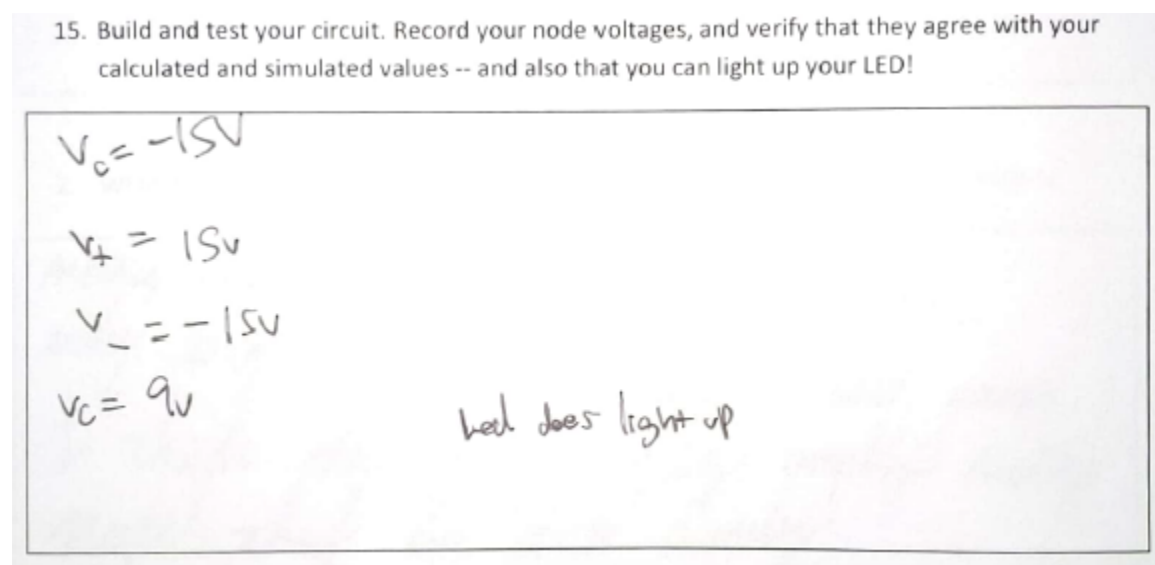 15. Build and test your circuit. Record your node voltages, and verify that they agree with your
calculated and simulated values -- and also that you can light up your LED!
Vc = -15V
V+ = 15v
V_ = -15v
Vc = 9v
Led does light up